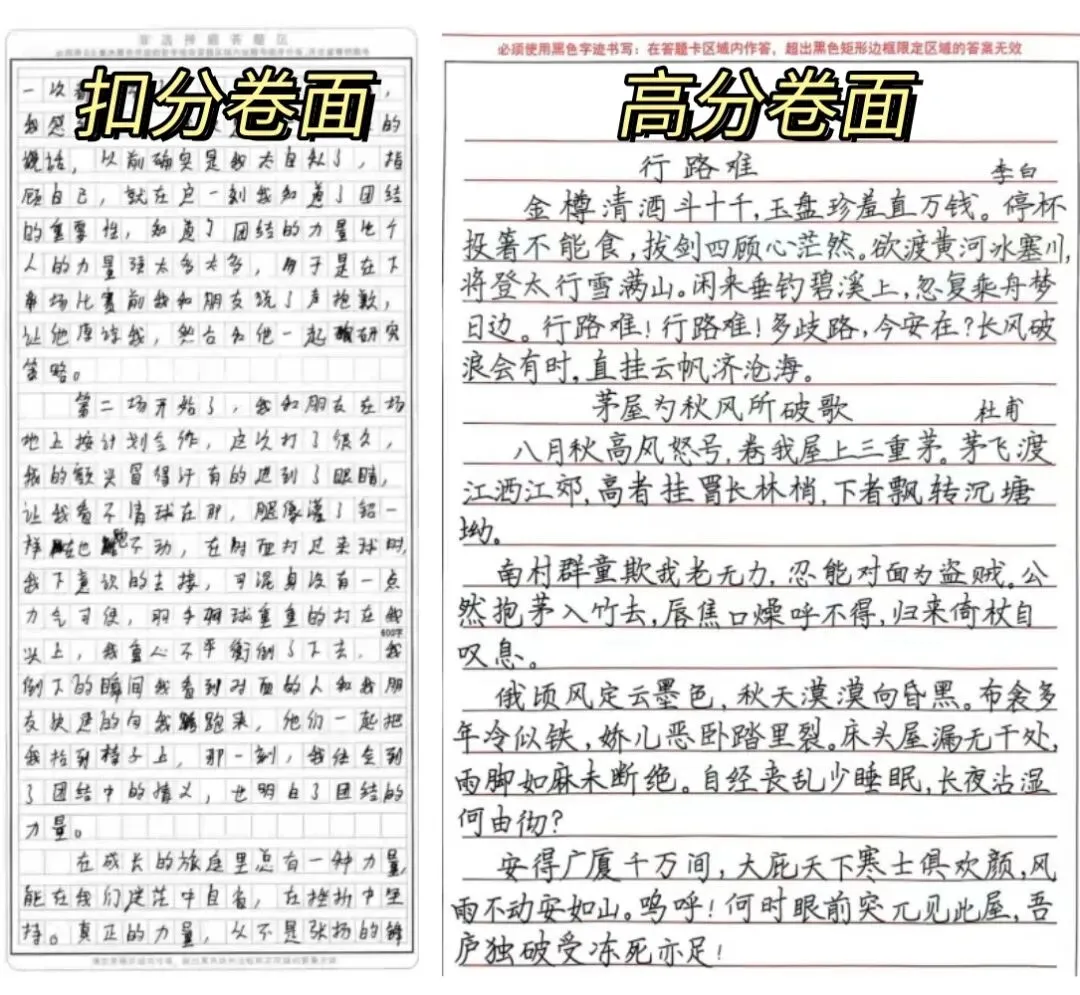 扣分卷面
一次
我感 的
说话，以前确实是我太自私了，指
顾自己，就在这一刻我知道了团结
的重要性，知道了团结的力量比个
人的力量强太多太多，于是在下
场比赛前我和朋友说了声抱歉，
让他原谅我，然后和他一起研究
策略。
第二场开始了，我和朋友在场
地上按计划合作，这次打了很久，
我的额头冒得汗有的进到了眼睛，
让我看不清球在那，腿像灌了铅一
样 也跑不动，在对面打过来球时，
我下意识的去接，可混身没有一点
力气可使，羽毛球重重的打在我
600字
头上，我重心不平衡倒了下去，我
倒下的瞬间我看到对面的人和我朋
友快速的向我跑来，他们一起把
我抬到椅子上，那一刻，我体会到
了团结中的情义，也明白了团结的
力量。
在成长的旅途里总有一种力量，
能在我们迷茫中自省，在挫折中坚
持。真正的力量，从不是张扬的
高分卷面
必须使用黑色字迹书写：在答题卡区域内作答，超出黑色矩形边框限定区域的答案无效
行路难 李白
金樽清酒斗十千，玉盘珍羞直万钱。停杯
投箸不能食，拔剑四顾心茫然。欲渡黄河冰塞川，
将登太行雪满山。闲来垂钓碧溪上，忽复乘舟梦
日边。行路难！行路难！多歧路，今安在？长风破
浪会有时，直挂云帆济沧海。
茅屋为秋风所破歌 杜甫
八月秋高风怒号，卷我屋上三重茅。茅飞渡
江洒江郊，高者挂罥长林梢，下者飘转沉塘
坳。
南村群童欺我老无力，忍能对面为盗贼。公
然抱茅入竹去，唇焦口燥呼不得，归来倚杖自
叹息。
俄顷风定云墨色，秋天漠漠向昏黑。布衾多
年冷似铁，娇儿恶卧踏里裂。床头屋漏无干处，
雨脚如麻未断绝。自经丧乱少睡眠，长夜沾湿
何由彻？
安得广厦千万间，大庇天下寒士俱欢颜，风
雨不动安如山。呜呼！何时眼前突兀见此屋，吾
庐独破受冻死亦足！